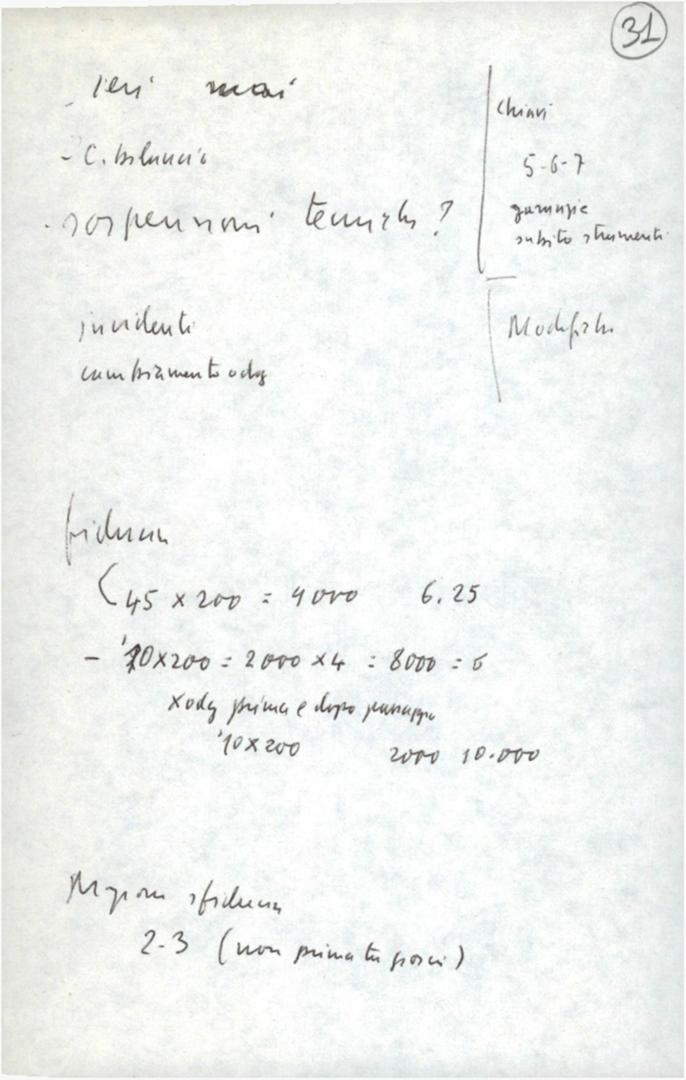 31
- ieri mai
- C. bilancio
- sospensioni tecniche?
incidenti
cambiamento odg
Chiavi
5-6-7
garanzie
subito strumenti
Modifiche
fiducia
(45 x 200 = 4000 6.25
- '10x200 = 2000 x4 = 8000 = 6
x odg prima e dopo passaggio
'10x200 2000 10.000
Mozioni sfiducia
2-3 (non prima tre giorni)